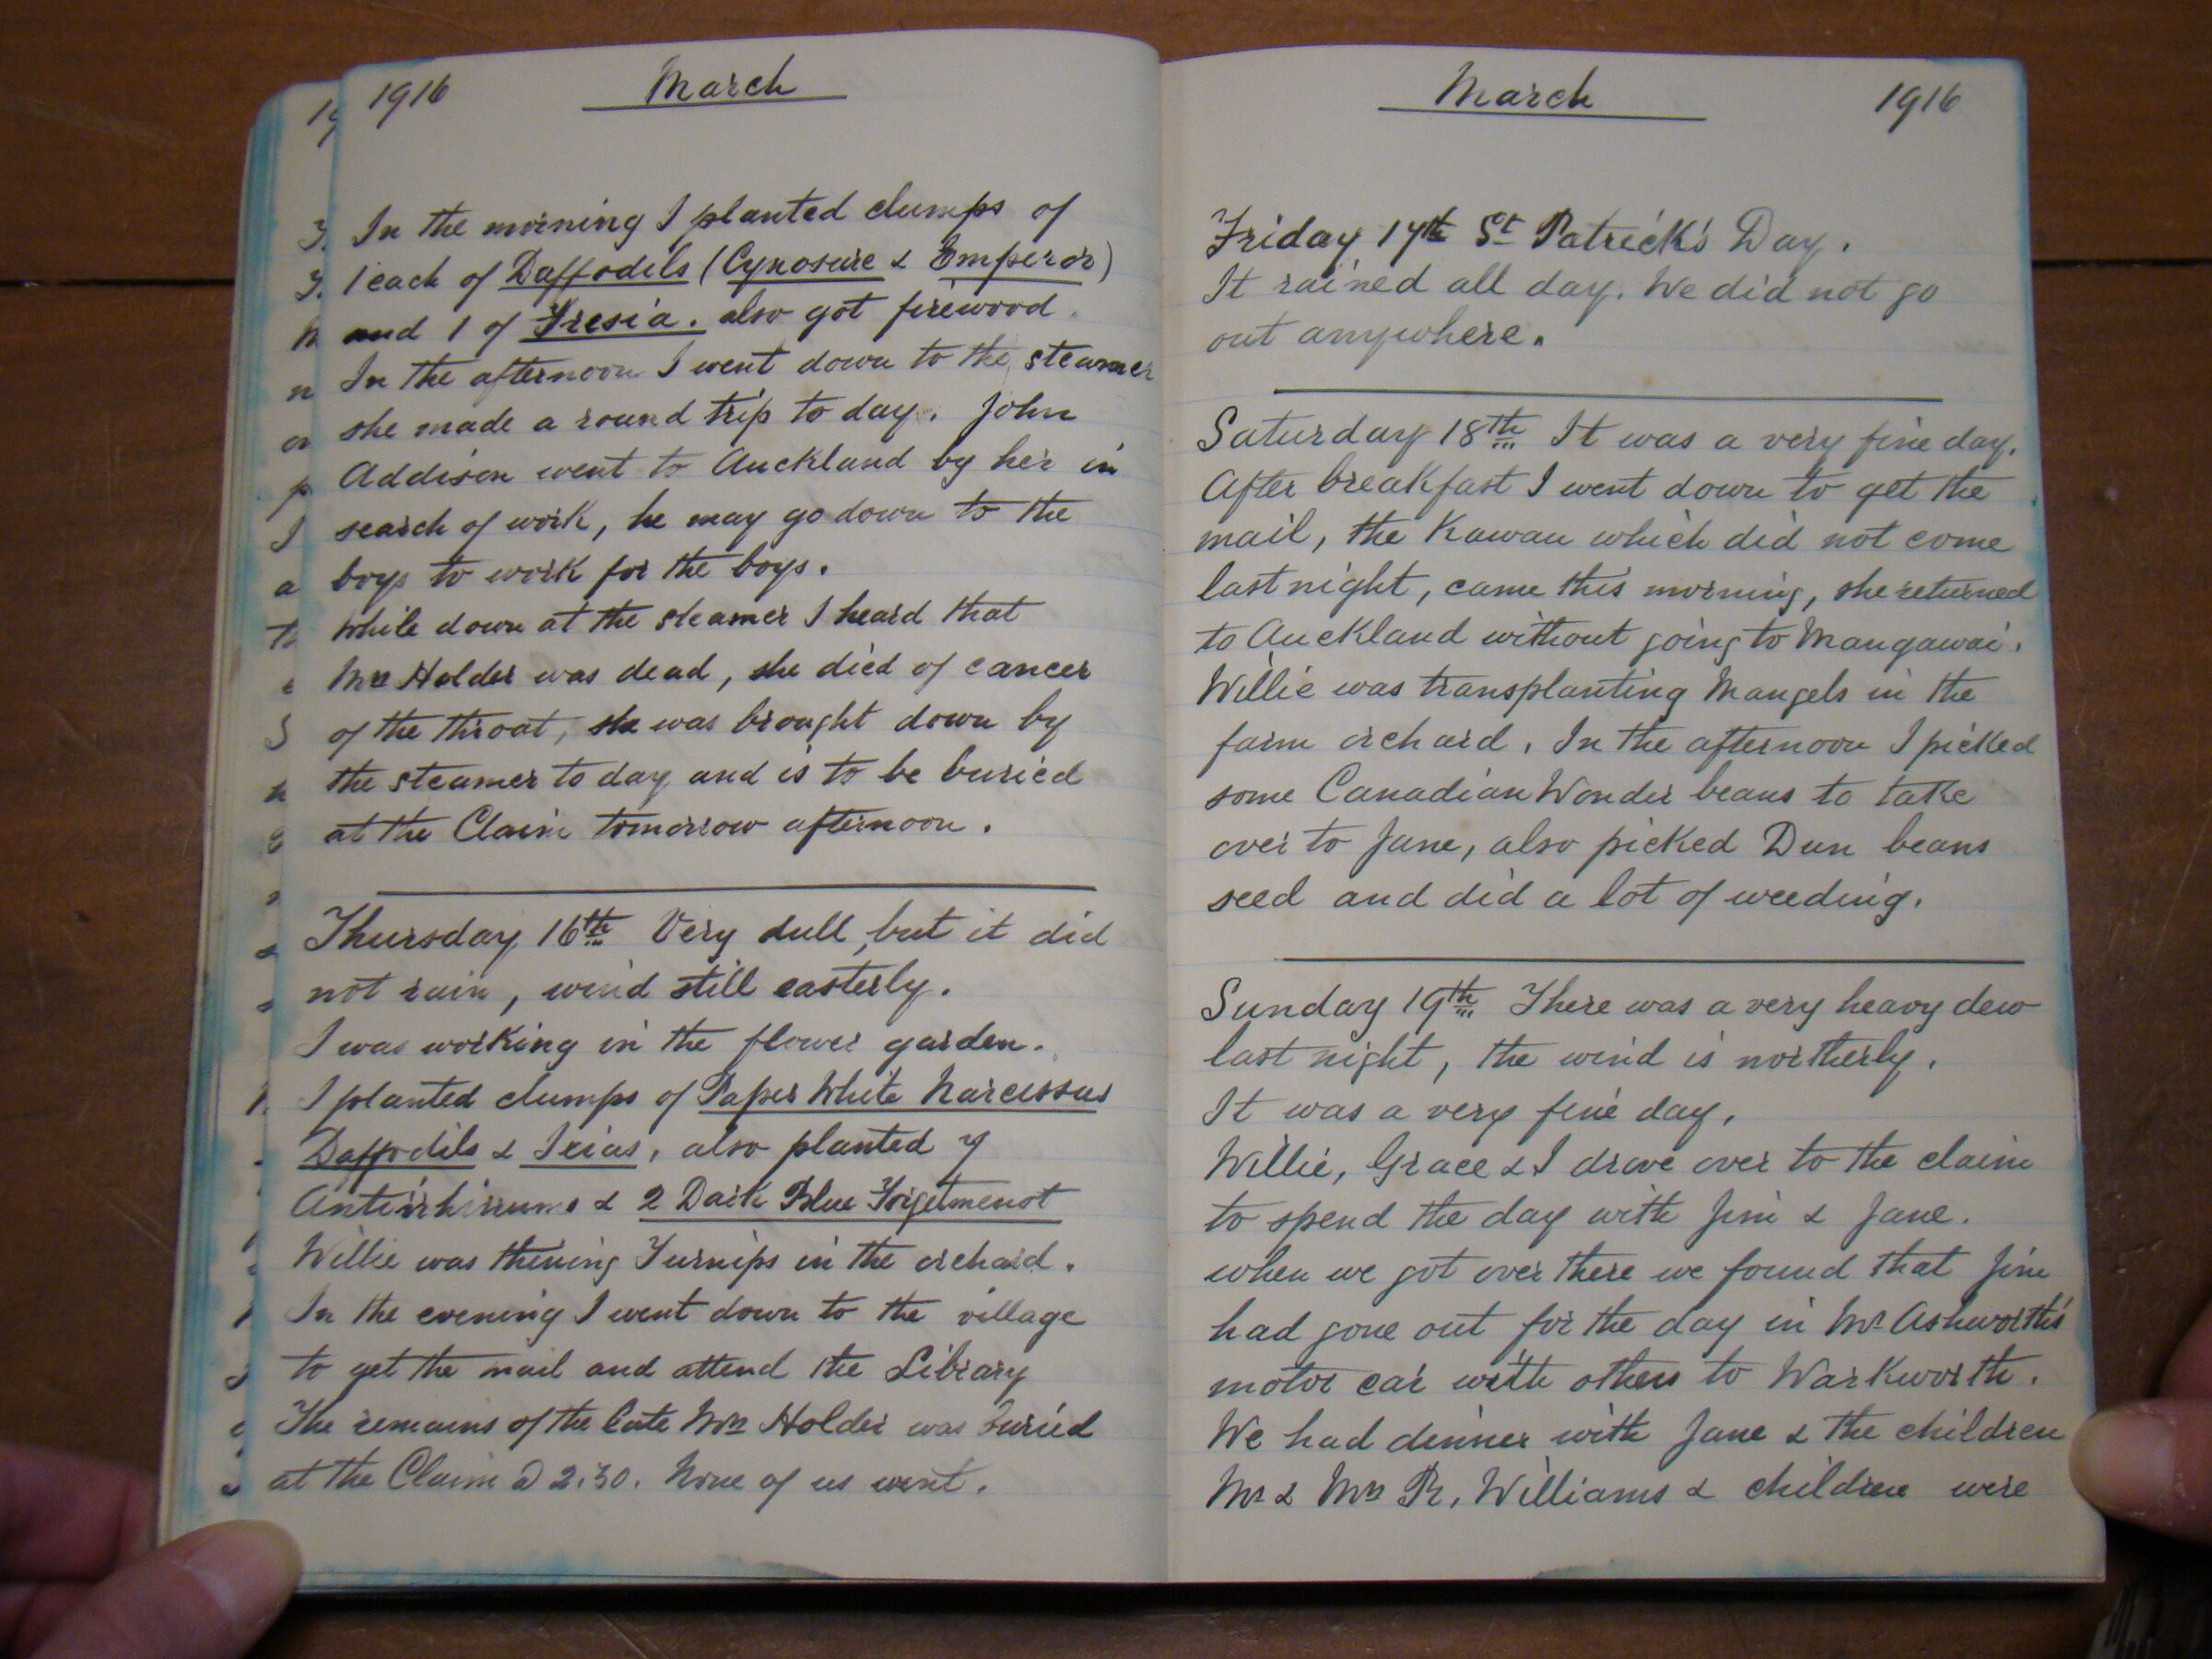 1916 March
In the morning I planted clumps of
1 each of Daffodils (Cynosure & Emperor)
and 1 of Fresia. also got firewood.
In the afternoon I went down to the steamer
she made a round trip to day. John
Addison went to Auckland by her in
search of work, he may go down to the
boys to work for the boys.
While down at the steamer I heard that
Mrs Holder was dead, she died of cancer
of the throat, she was brought down by
the steamer to day and is to be buried
at the Claim tomorrow afternoon.
Thursday 16th Very dull, but it did
not rain, wind still easterly.
I was working in the flower garden.
I planted clumps of Paper White Narcissus
Daffodils & Irias, also planted 7
Antirrhinums & 2 Dark Blue Forgetmenot
Willie was thining Turnips in the orchard.
In the evening I went down to the village
to get the mail and attend the Library
The remains of the late Mrs Holder was buried
at the Claim @ 2.30. None of us went.
March 1916
Friday 17th St Patrick's Day.
It rained all day. We did not go
out anywhere.
Saturday 18th It was a very fine day.
After breakfast I went down to get the
mail, the Kawau which did not come
last night, came this morning, she returned
to Auckland without going to Mangawai.
Willie was transplanting Mangels in the
farm orchard. In the afternoon I picked
some Canadian Wonder beans to take
over to Jane, also picked Dun beans
seed and did a lot of weeding.
Sunday 19th There was a very heavy dew
last night, the wind is northerly.
It was a very fine day,
Willie, Grace & I drove over to the claim
to spend the day with Jim & Jane.
when we got over there we found that Jim
had gone out for the day in Mr Ashworth's
motor car with others to Warkworth.
We had dinner with Jane & the children
Mr & Mrs R. Williams & children were